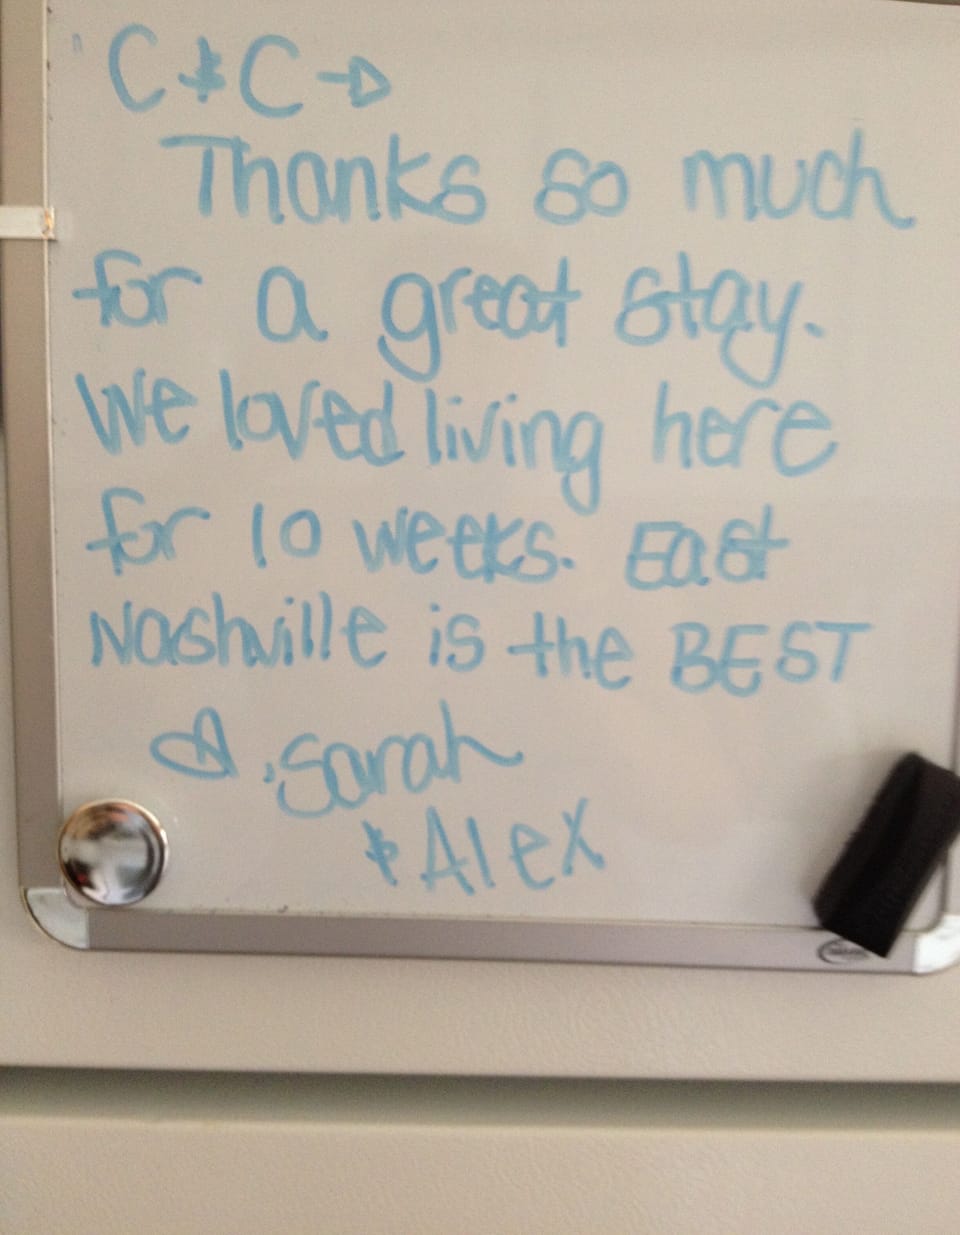 C & C →
Thanks so much
for a great stay.
We loved living here
for 10 weeks. East
Nashville is the BEST
♡, Sarah
& Alex